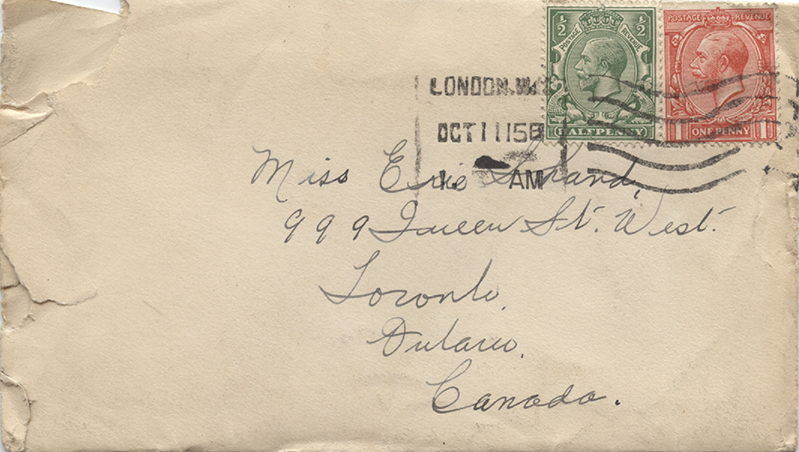 ½ POSTAGE REVENUE ½
HALFPENNY
POSTAGE REVENUE
1 ONE PENNY 1
LONDON.W.
OCT 11 15
AM
Miss Erie
999 Queen St. West.
Toronto,
Ontario,
Canada.